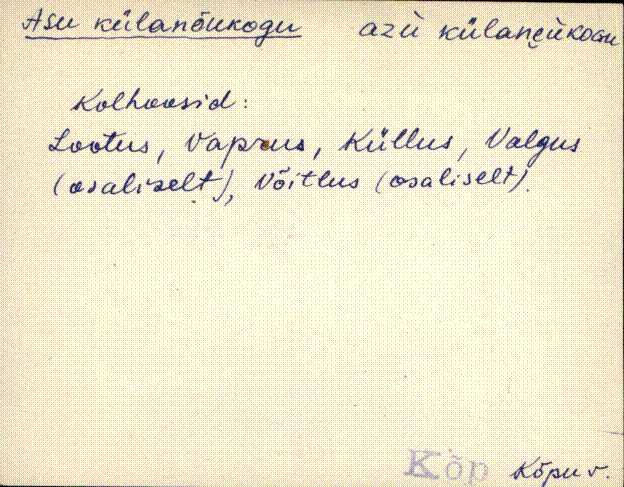 Asu külanõukogu azù külane̮ùkoGu
Kolhoosid:
Lootus, Vaprus, Küllus, Valgus
(osaliselt), Võitlus (osaliselt).
Kõp Kõpu v.